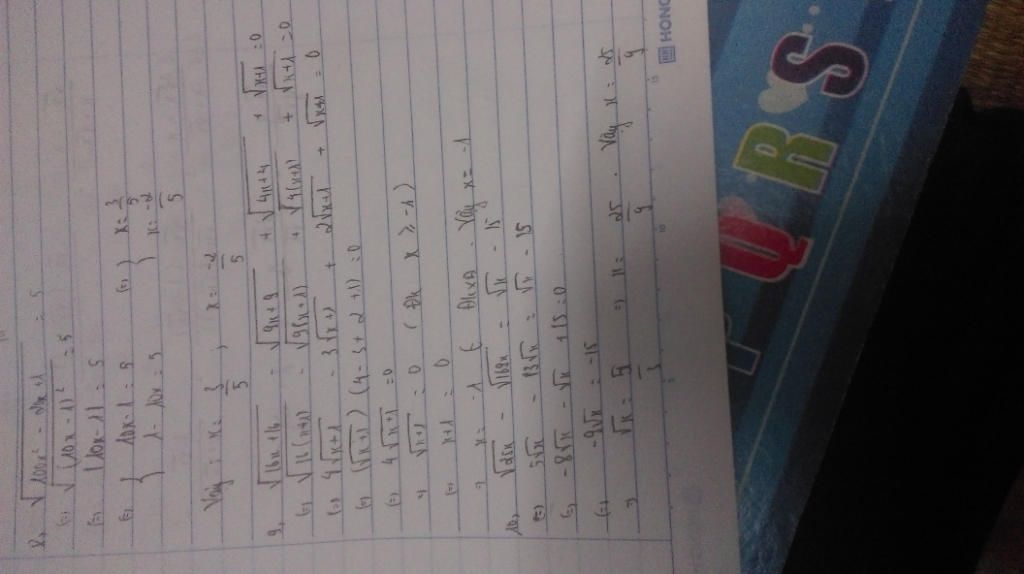 8, √(100x² - 20x + 1) = 5
(=) √(10x - 1)² = 5
(=) |10x - 1| = 5
(=) { 10x - 1 = 5 (=) } x = 3/5
{ 1 - 10x = 5 } x = -2/5
Vậy : x = 3/5 ; x = -2/5
9, √(16x + 16) - √(9x + 9) + √(4x + 4) + √(x + 1) = 0
(=) √(16(x+1)) - √(9(x+1)) + √(4(x+1)) + √(x+1) = 0
(=) 4√(x+1) - 3√(x+1) + 2√(x+1) + √(x+1) = 0
(=) (√(x+1)) (4 - 3 + 2 + 1) = 0
(=) 4√(x+1) = 0
√(x+1) = 0 ( Đk x ≥ -1 )
(=) x + 1 = 0
x = -1 ( Vậy x = -1
10, √(25x) - √(169x) = √x - 15
(=) 5√x - 13√x = √x - 15
(=) -8√x - √x + 15 = 0
(=) -9√x = -15
=> √x = 5/3 => x = 25/9 . Vậy x = 25/9
HONG
5 10 15
Q R S